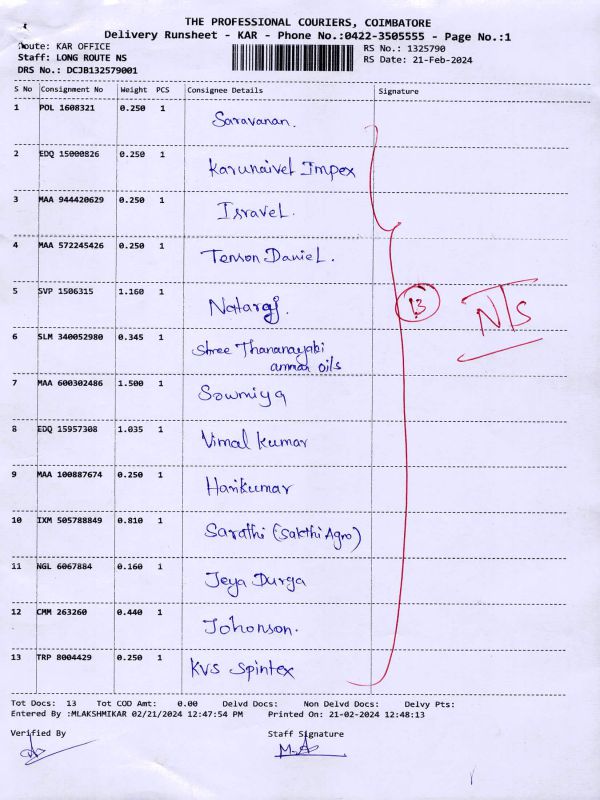 THE PROFESSIONAL COURIERS, COIMBATORE
Delivery Runsheet - KAR - Phone No.:0422-3505555 - Page No.:1
Route: KAR OFFICE RS No.: 1325790
Staff: LONG ROUTE NS RS Date: 21-Feb-2024
DRS No.: DCJB132579001
S No Consignment No Weight PCS Consignee Details Signature
1 POL 1608321 0.250 1 Saravanan.
2 EDQ 15000826 0.250 1 Karunaivel Impex
3 MAA 944420629 0.250 1 Isravel.
4 MAA 572245426 0.250 1 Tenson Daniel.
5 SVP 1506315 1.160 1 Nataraj. 13 N/S
6 SLM 340052980 0.345 1 Shree Thananayaki
amman oils
7 MAA 600302486 1.500 1 Sowmiya
8 EDQ 15957308 1.035 1 Vimal Kumar
9 MAA 100887674 0.250 1 Harikumar
10 IXM 505788849 0.810 1 Sarathi (Sakthi Agro)
11 NGL 6067884 0.160 1 Jeya Durga
12 CMM 263260 0.440 1 Johonson.
13 TRP 8004429 0.250 1 KVS Spintex
Tot Docs: 13 Tot COD Amt: 0.00 Delvd Docs: Non Delvd Docs: Delvy Pts:
Entered By :MLAKSHMIKAR 02/21/2024 12:47:54 PM Printed On: 21-02-2024 12:48:13
Verified By Staff Signature